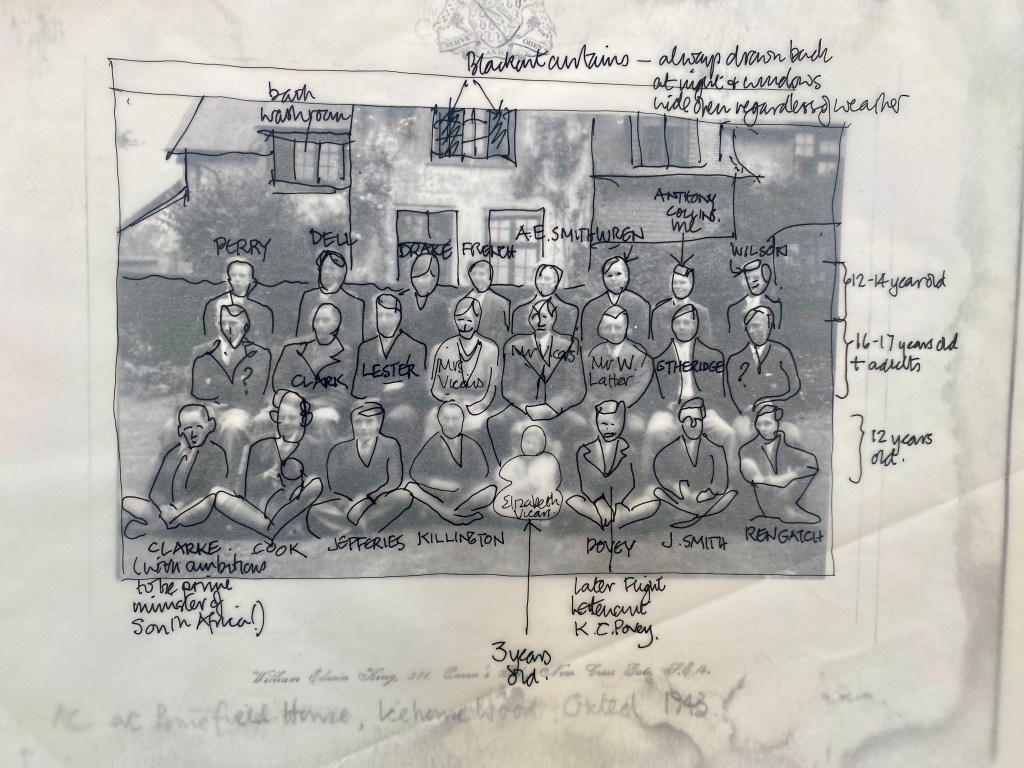 Blackout curtains – always drawn back
at night & windows
wide open regardless of weather
bath
washroom
ANTHONY
COLLINS.
ME
PERRY
DELL
DRAKE
FRENCH
A.E. SMITH
WREN
WILSON
12-14 year old
?
CLARK
LESTER
Mrs
Vicars
Mr Vicars
Mr W.
Latter
ETHERIDGE
?
16-17 years old
+ adults
12 years
old.
Elizabeth
Vicars
CLARKE.
(with ambitions
to be prime
minister of
South Africa!)
COOK
JEFFERIES
KILLINGTON
POVEY
J. SMITH
RENGATCH
Later Flight
Leutenant
K.C. Povey.
3 years
old.
William Edwin King, 281, Queen's New Cross Gate, S.E.14.
AC at House, Icehouse Wood Oxted 1943